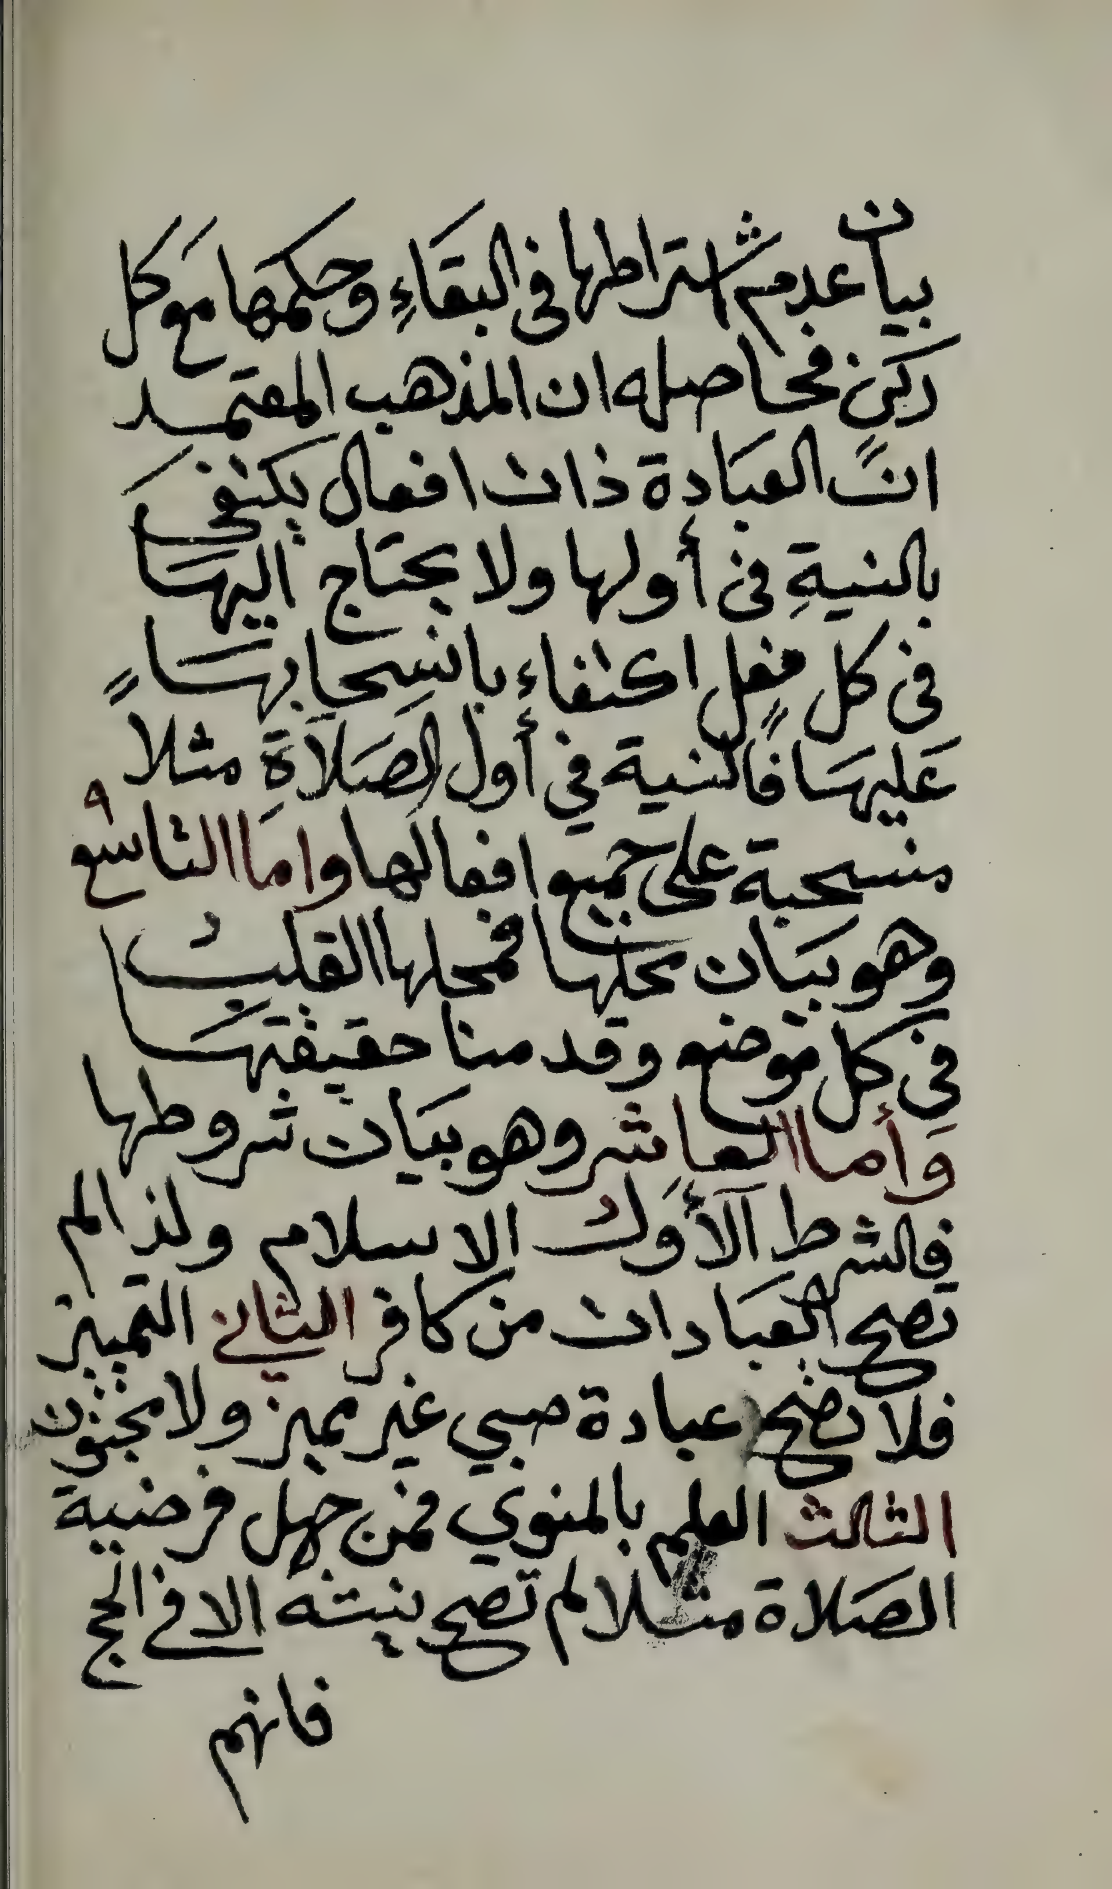 بيان عدم اشتراطها في البقاءِ وحكمها مع كل
ركن فحاصله ان المذهب المعتمد
ان العبادة ذات افعال يكتفى
بالنيةِ في أولها ولا يحتاج اليها
في كل فعل اكتفاء بانسحابها
عليها فالنية في أول الصَلاَةِ مثلاً
٩
منسحبة على جميع افعالها واما التاسع
وهو بيان محلها فمحلها القلب
في كل موضع وقدمنا حقيقتها
وأما العاشر وهو بيان شروطها
فالشرط الأول الاسلام ولذا لم
تصح العبادات من كافر الثاني التمييز
فلا تصح عبادة صبي غير مميز ولا مجنون
الثالث العلم بالمنوي فمن جهل فرضية
الصلاة مثلا لم تصح نيته الا في الحج
فانهم